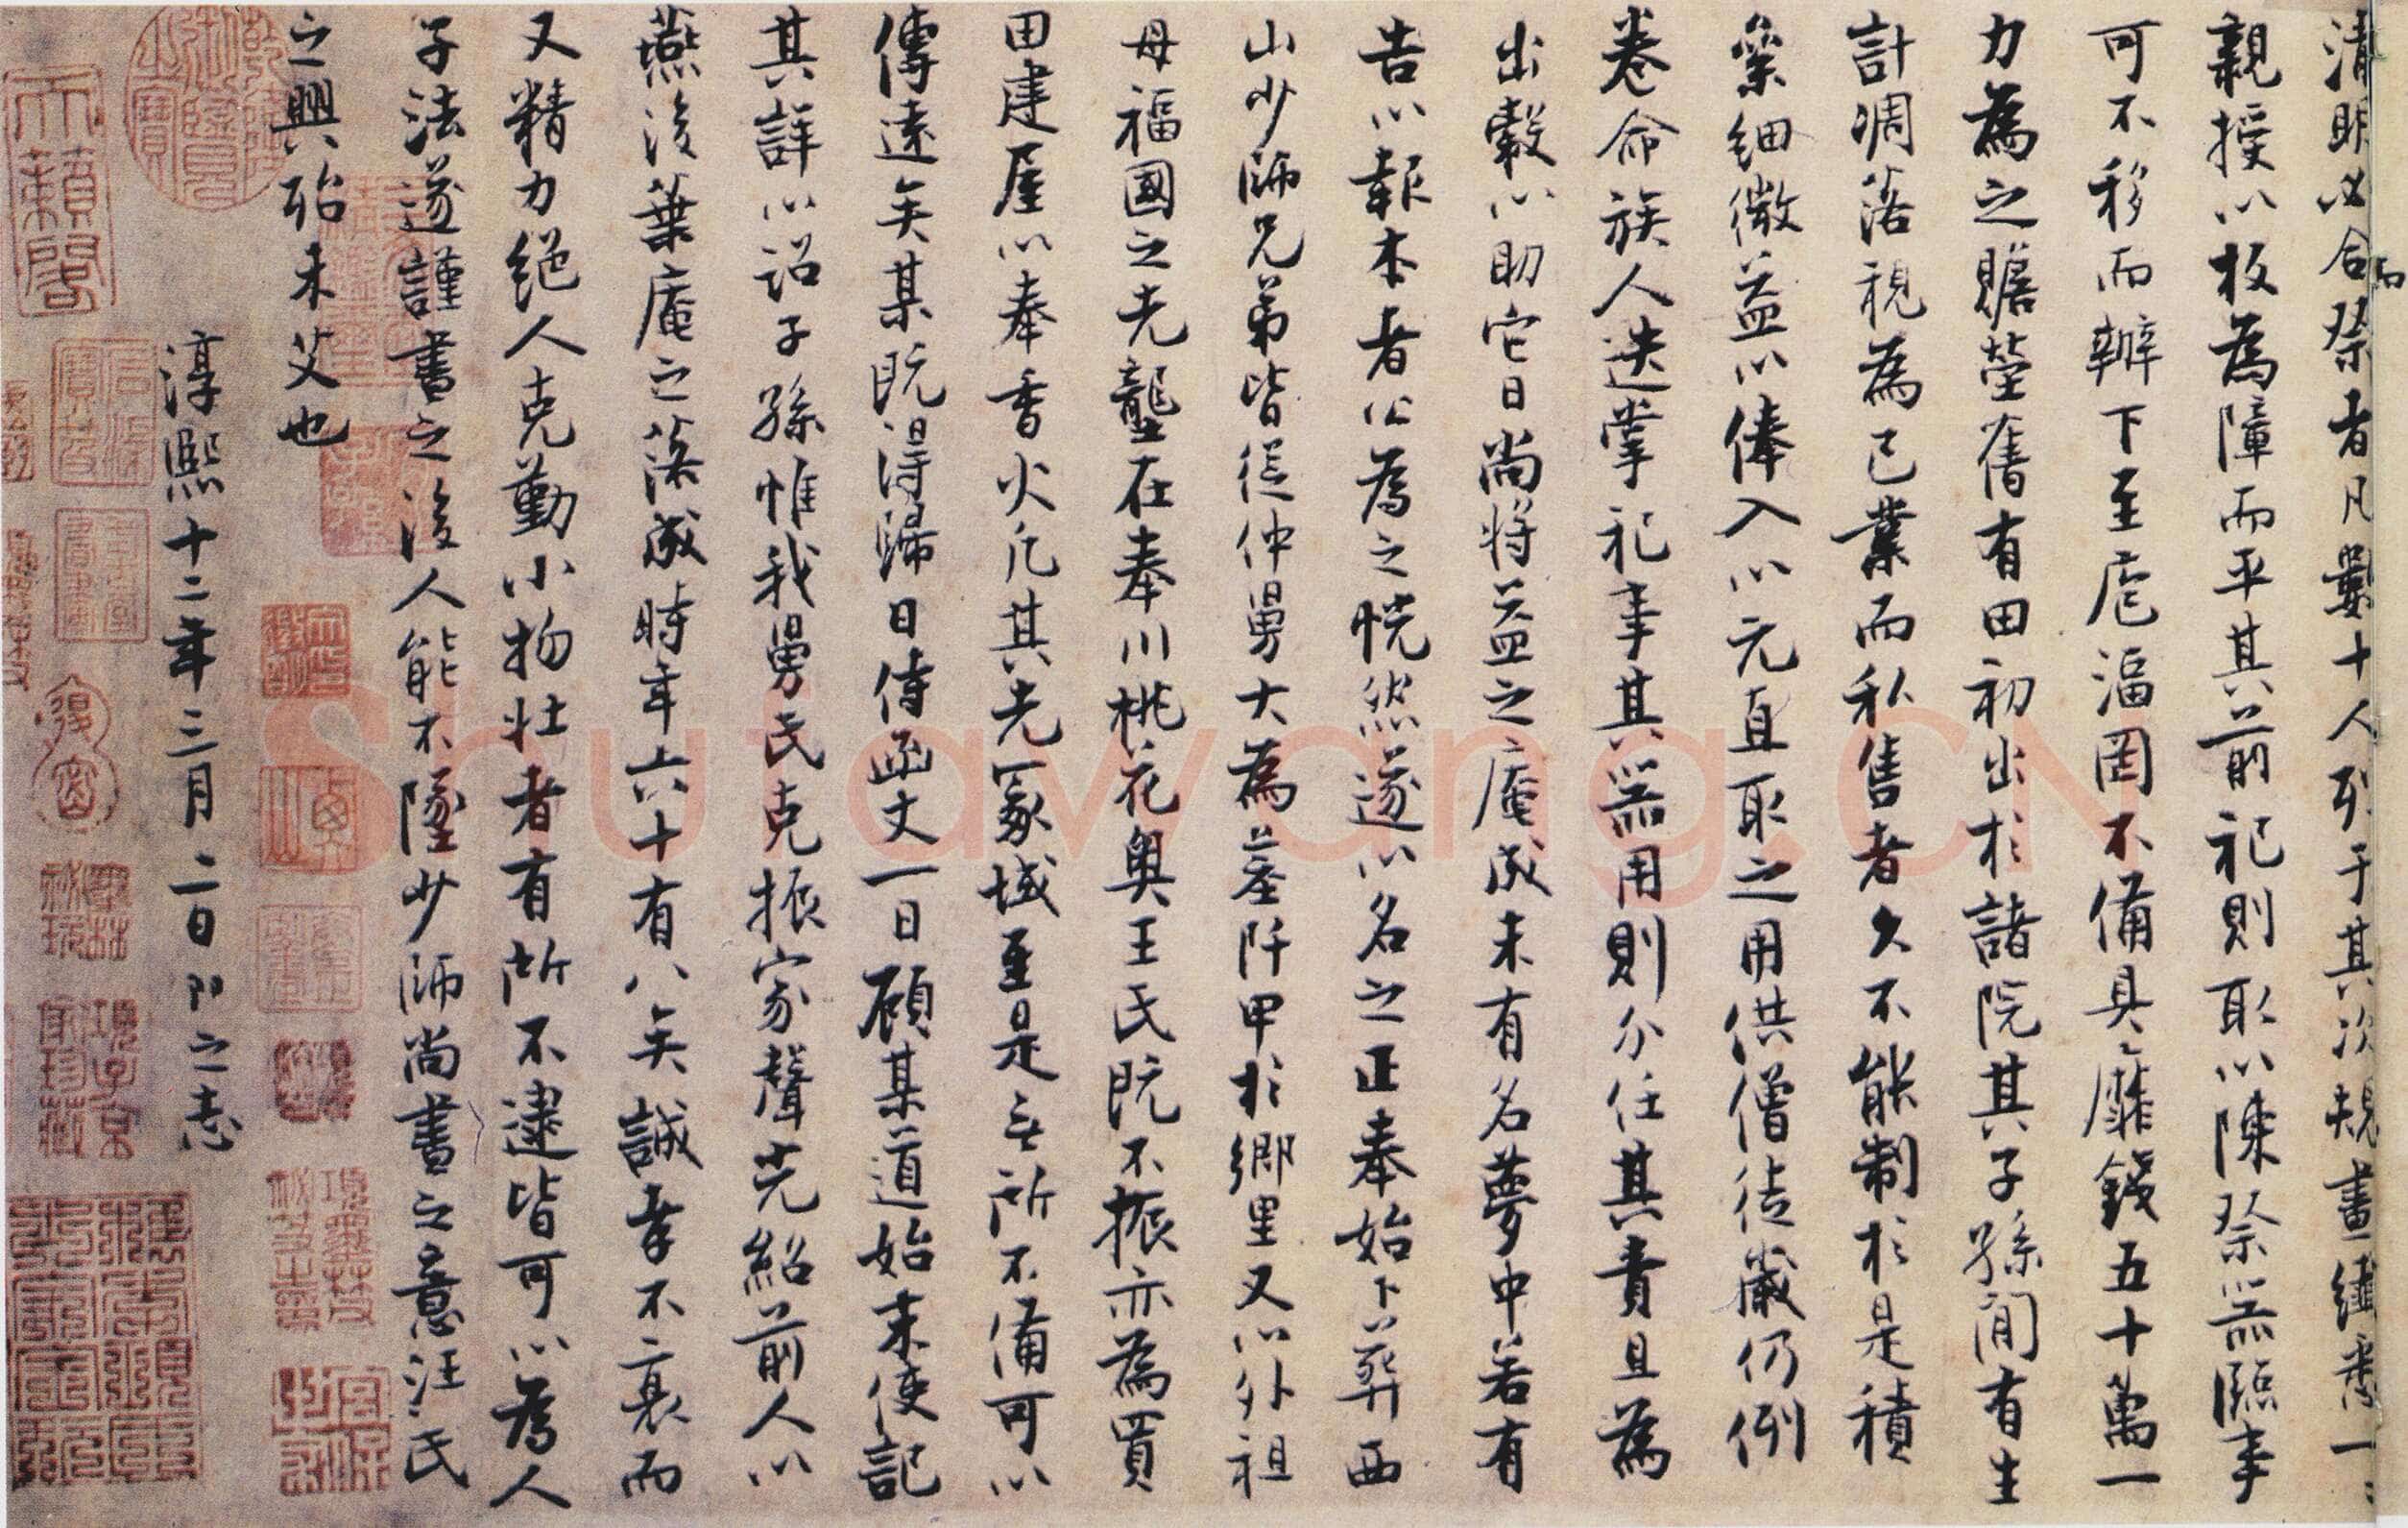 清明必合祭者凡數十人列于其次規畫纖悉一一
親授以板為障而平其前祀則取以陳祭器臨事
可不移而辦下至庖湢罔不備具靡錢五十萬一
力為之贍塋舊有田初出於諸院其子孫間有生
計凋落視為己業而私售者久不能制於是積
絫細微益以俸入以元直取之用供僧徒歲仍例
卷命族人迭掌祀事其器用則分任其責且為
出穀以助它日尚將益之庵成未有名夢中若有
告以報本者公為之恍然遂以名之正奉始卜葬西
山少師兄弟皆從仲舅大為墓阡甲於鄉里又以外祖
母福國之先壟在奉川桃花奧王氏既不振亦為買
田建屋以奉香火凡其先冢域至是無所不備可以
傳遠矣某既得歸日侍函丈一日顧某道始末使記
其詳以詔子孫惟我舅氏克振家聲光紹前人以
燕後葉庵之落成時年六十有八矣誠孝不衰而
又精力絕人克勤小物壯者有所不逮皆可以為人
子法遂謹書之後人能不墜少師尚書之意汪氏
之興殆未艾也
淳熙十二年三月二日 之志
乾隆御覽之寶
天籟閣
項子京家珍藏
項墨林父秘笈之印
宜子孫
Shufawang.CN